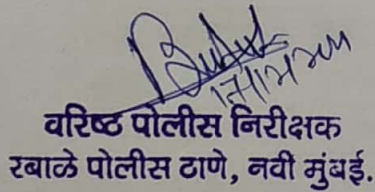 वरिष्ट पोलीस निरीक्षक
रबाळे पोलीस ठाणे, नवी मुंबई.